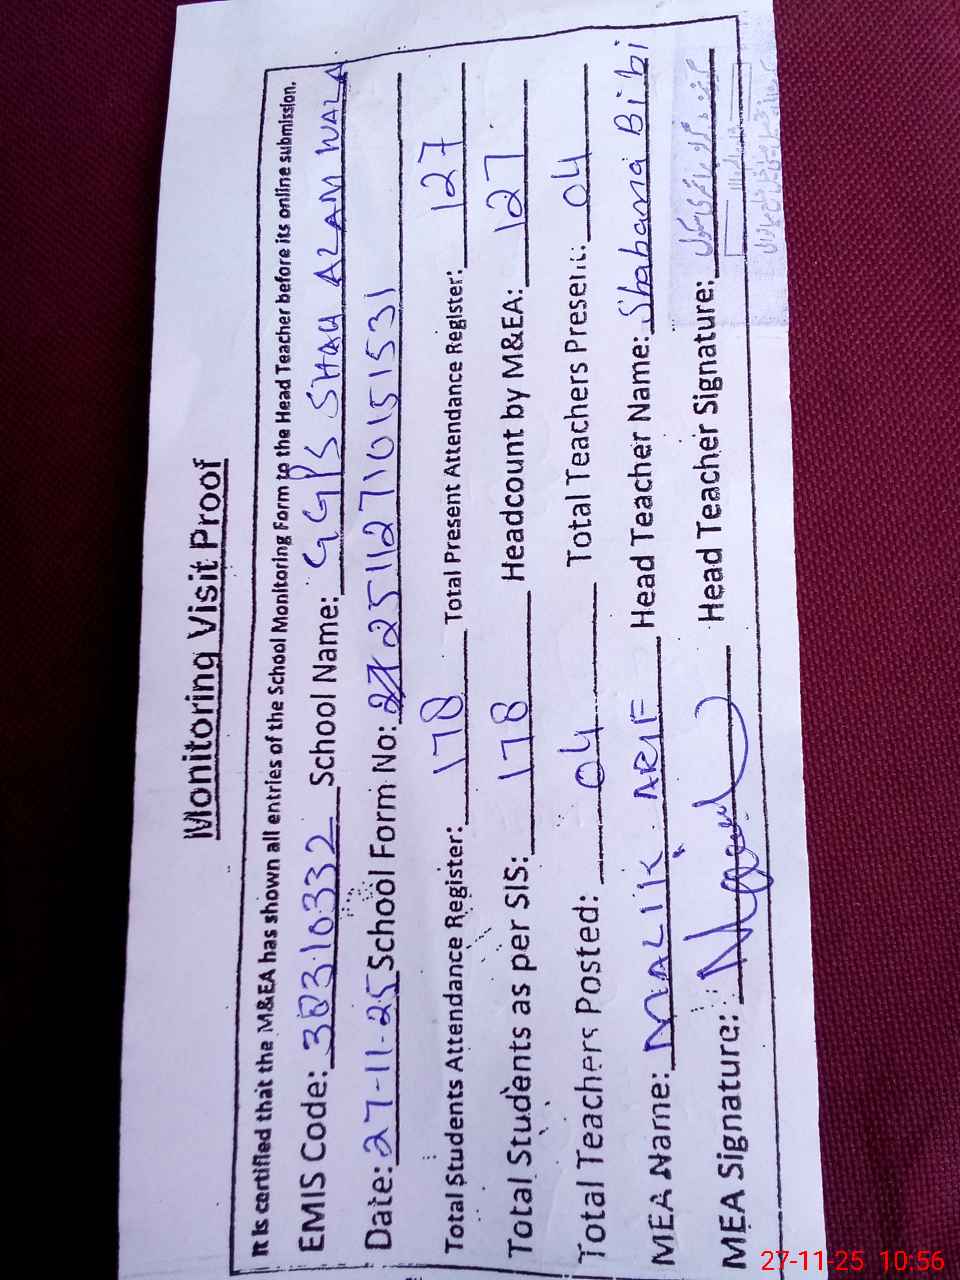 Monitoring Visit Proof
It is certified that the M&EA has shown all entries of the School Monitoring Form to the Head Teacher before its online submission.
EMIS Code: 38310332 School Name: GGPS SHAH ALAM WALA
Date: 27-11-25 School Form No: 25112710151531
Total Students Attendance Register: 178 Total Present Attendance Register: 127
Total Students as per SIS: 178 Headcount by M&EA: 127
Total Teachers Posted: 04 Total Teachers Present: 04
MEA Name: MALIK ARIF Head Teacher Name: Shabana Bibi
MEA Signature: Head Teacher Signature:
27-11-25 10:56